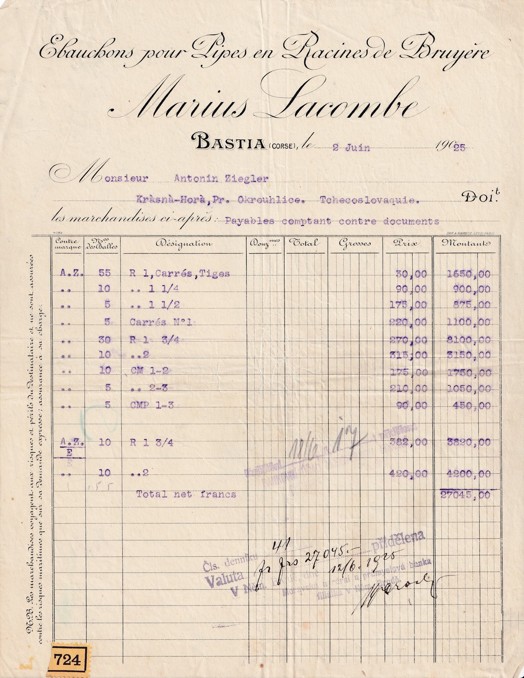 Ebauchons pour Pipes en Racines de Bruyère
Marius Lacombe
BASTIA (CORSE), le 2 Juin 1925
Monsieur Antonin Ziegler
Kràsnà-Horà, Pr. Okrouhlice. Tchecoslovaquie. Doit
les marchandises ci-après: Payables comptant contre documents
Contre marque Nos des balles Désignation Douzaines Total Grosses Prix Montants
A.Z. 55 R 1, Carrés, Tiges 30,00 1650,00
.. 10 .. 1 1/4 90,00 900,00
.. 5 .. 1 1/2 175,00 875,00
.. 5 Carrés N°1 220,00 1100,00
.. 30 R 1 3/4 270,00 8100,00
.. 10 ..2 315,00 3150,00
.. 10 CM 1-2 175,00 1750,00
.. 5 .. 2-3 210,00 1050,00
.. 5 CMP 1-3 90,00 450,00
A.Z./E 10 R 1 3/4 382,00 3820,00
.. 10 ..2 420,00 4200,00
155
Total net francs 27045,00
11/6
Čís. denníku 41
Valuta fr frs 27045.- přidělena
V Něm. 12/6. 1925
průmyslová banka
N.B. Les marchandises voyagent aux risques et périls du destinataire et ne sont assurées
contre les risques maritimes que sur sa demande expresse; assurance à sa charge.
724